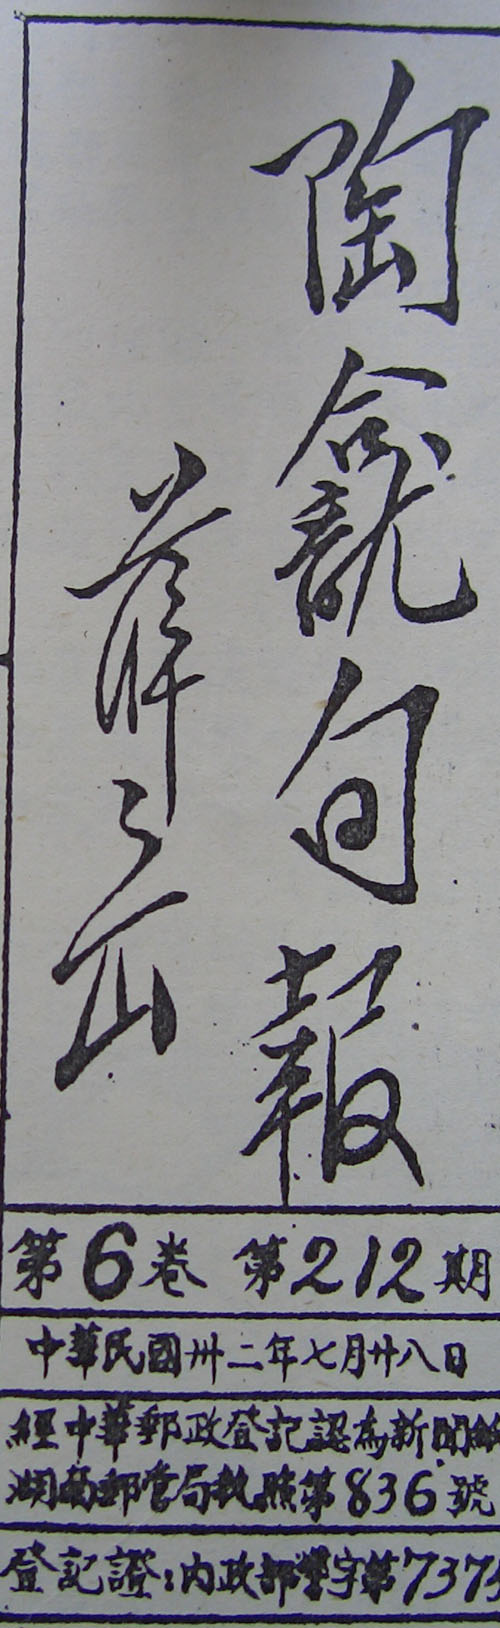 陶龕旬報
薛岳
第6卷 第212期
中華民國卅二年七月廿八日
經中華郵政登記認為新聞紙
湖南郵管局執照第836號
登記證：內政部警字第7373